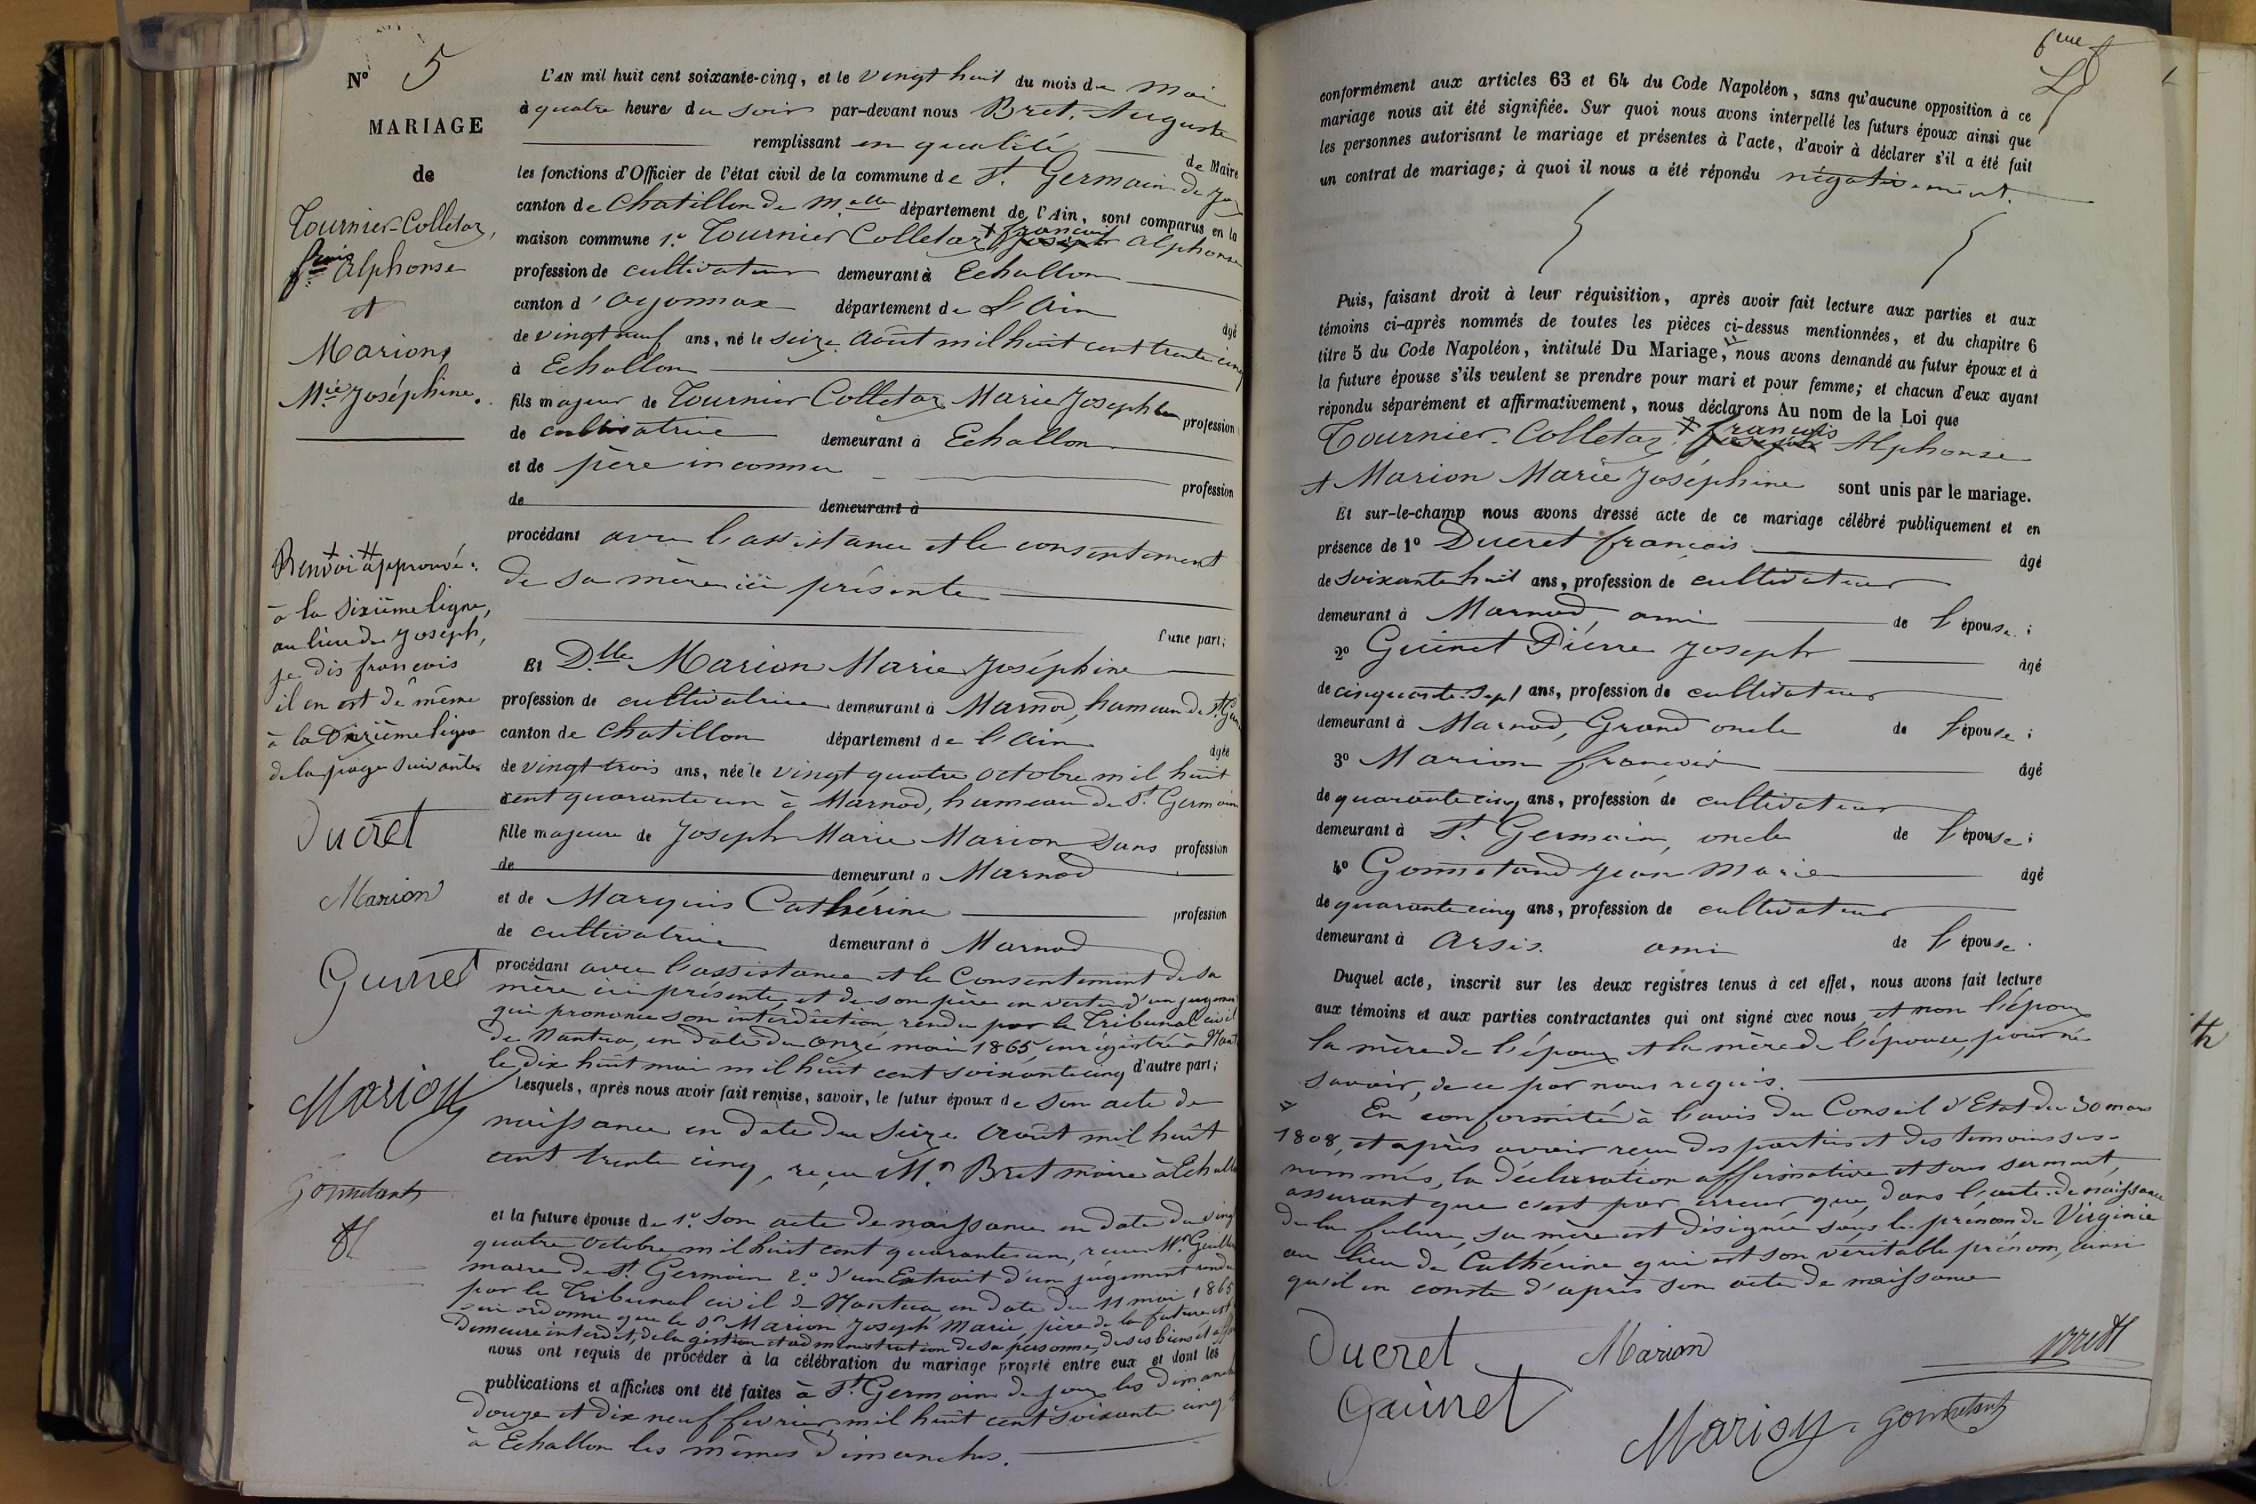 N° 5
MARIAGE
de
Tournier-Colletaz,
frois Alphonse
et
Marion,
Mie Joséphine.
Renvoi approuvé :
à la sixième ligne,
au lieu de Joseph,
je dis françois
il en est de même
à la onzième ligne
de la page suivante
Ducret
Marion
Guinet
Marion
Gonnetand
L'AN mil huit cent soixante-cinq, et le vingt huit du mois de mai
à quatre heures du soir par-devant nous Bret, Auguste
remplissant en qualité de Maire
les fonctions d'Officier de l'état civil de la commune de St. Germain de Joux
canton de Chatillon de Mlle département de l'Ain, sont comparus en la
maison commune 1.° Tournier Colletaz françois Joseph Alphonse
profession de cultivateur demeurant à Echallon
canton d'Oyonnax département de L'Ain âgé
de vingt neuf ans, né le seize Août mil huit cent trente cinq
à Echallon
fils majeur de Tournier Colletaz Marie Josephte profession
de cultivatrice demeurant à Echallon
et de père inconnu profession
de demeurant à
procédant avec l'assistance et le consentement
de sa mère ici présente
d'une part;
Et Dlle Marion Marie Joséphine
profession de cultivatrice demeurant à Marnod, hameau de St. Germ
canton de Chatillon département de l'Ain âgée
de vingt trois ans, née le vingt quatre octobre mil huit
cent quarante un à Marnod, hameau de St. Germain
fille majeure de Joseph Marie Marion sans profession
de demeurant à Marnod
et de Marquis Cathérine profession
de cultivatrice demeurant à Marnod
procédant avec l'assistance et le Consentement de sa
mère ici présente, et de son père en vertu d'un jugement
qui prononce son interdiction, rendu par le Tribunal civil
de Nantua, en date du onze mai 1865, enregistré à Nant
le dix huit mai mil huit cent soixante cinq d'autre part;
Lesquels, après nous avoir fait remise, savoir, le futur époux de son acte de
naissance en date du seize Août mil huit
cent trente cinq, reçu Mr. Bret maire à Echall
et la future épouse de 1.° son acte de naissance en date du vingt
quatre octobre mil huit cent quarante un, reçu Mr.
maire de St. Germain 2.° d'un Extrait d'un jugement rendu
par le Tribunal civil de Nantua en date du 11 mai 1865
qui ordonne que le Sr Marion Joseph Marie père de la future est
demeure interdit, de la gestion et administration de sa personne, de ses biens et
nous ont requis de procéder à la célébration du mariage projeté entre eux et dont les
publications et affiches ont été faites à St. Germain de Joux les dimanches
douze et dix neuf février mil huit cent soixante cinq
à Echallon les mêmes dimanches.
6eme
conformément aux articles 63 et 64 du Code Napoléon, sans qu'aucune opposition à ce
mariage nous ait été signifiée. Sur quoi nous avons interpellé les futurs époux ainsi que
les personnes autorisant le mariage et présentes à l'acte, d'avoir à déclarer s'il a été fait
un contrat de mariage; à quoi il nous a été répondu négativement.
Puis, faisant droit à leur réquisition, après avoir fait lecture aux parties et aux
témoins ci-après nommés de toutes les pièces ci-dessus mentionnées, et du chapitre 6
titre 5 du Code Napoléon, intitulé Du Mariage, nous avons demandé au futur époux et à
la future épouse s'ils veulent se prendre pour mari et pour femme; et chacun d'eux ayant
répondu séparément et affirmativement, nous déclarons Au nom de la Loi que
Tournier-Colletaz, françois Joseph Alphonse
et Marion Marie Joséphine sont unis par le mariage.
Et sur-le-champ nous avons dressé acte de ce mariage célébré publiquement et en
présence de 1° Ducret françois âgé
de soixante huit ans, profession de cultivateur
demeurant à Marnod, ami de l'épouse;
2° Guinet Piérre Joseph âgé
de cinquante-sept ans, profession de cultivateur
demeurant à Marnod, Grand oncle de l'épouse;
3° Marion françois âgé
de quarante cinq ans, profession de cultivateur
demeurant à St. Germain, oncle de l'épouse;
4° Gonnetand Jean Marie âgé
de quarante cinq ans, profession de cultivateur
demeurant à Arsis. ami de l'épouse.
Duquel acte, inscrit sur les deux registres tenus à cet effet, nous avons fait lecture
aux témoins et aux parties contractantes qui ont signé avec nous et non l'époux
la mère de l'époux et la mère de l'épouse, pour ne
savoir, de ce par nous requis.
En conformité à l'avis du Conseil d'Etat du 30 mars
1808, et après avoir reçu des parties et des temoins sus-
nommés, la déclaration affirmative et sous serment,
assurant que c'est par erreur que, dans l'acte de naissance
de la future, sa mère est désignée sous le prénom de Virginie
au lieu de Cathérine qui est son véritable prénom, ainsi
qu'il en conste d'après son acte de naissance
Ducret Marion Bret
Guinet
Marion Gonnetand